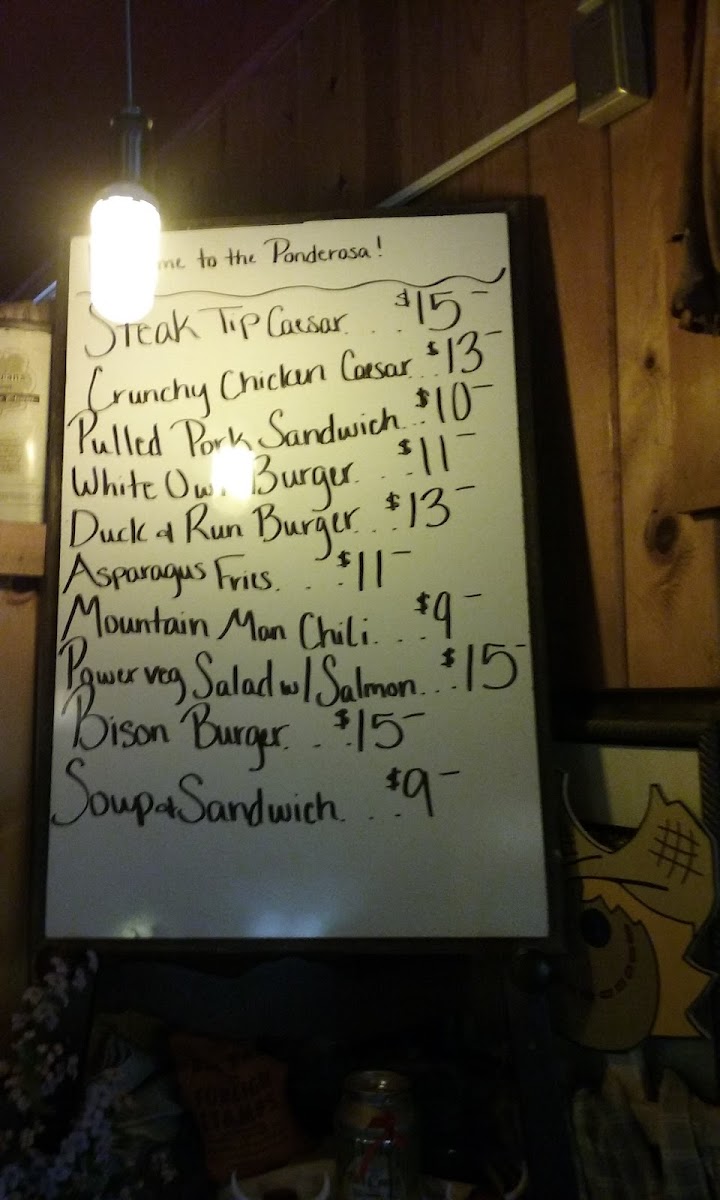 me to the Ponderosa!
Steak Tip Caesar... $15-
Crunchy Chicken Caesar.. $13-
Pulled Pork Sandwich... $10-
White Owl Burger... $11-
Duck & Run Burger... $13-
Asparagus Fries... $11-
Mountain Man Chili... $9-
Powerveg Salad w/ Salmon... $15-
Bison Burger... $15-
Soup & Sandwich... $9-
FOREIGN
STAMPS